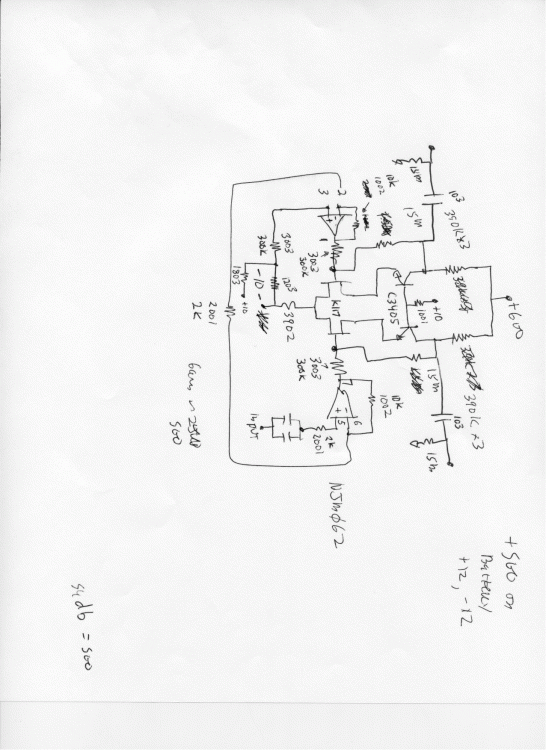 +600
103
390K x3
15m
15m
390K x3
103
15m
15m
+10
1101
C3405
K117
10K
1002
2
3
1
3003
300K
3003
300K
1803
+10
-10
1203
3902
2001
2K
3003
300K
10K
1002
6
5
2K
2001
input
Gain
500
NJM062
+560 on
Battery
+12, -12
54db = 500